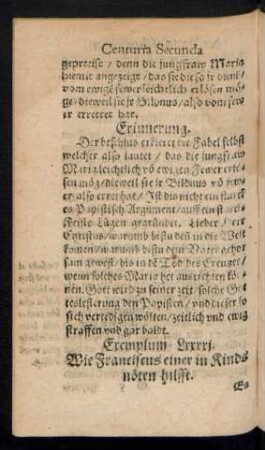 Centuria Secunda
geprecise / denn die jungfraw Maria
hiemit angezeigt / das sie die so jr dienẽ/
vom ewigẽ fewer leichtlich erlösen mö-
ge / dieweil sie jr Bildnus / also vom few-
er errettet hat.
Erinnerung.
Der beschlus erkleret die Fabel selbst
welcher also lautet / das die jungfraw
Maria leichtlich võ ewigen Fewer erlö-
sen mög / dieweil sie jr Bildnus võ fewr
er / also errettet hat / Ist dis nicht ein starc-
kes Papistisch Argument / auff ein starc-
kes Lügen gegründet. Lieber / Herr
Christus / warumb bistu deñ in die Welt
komen / warumb bistu dem Vater gehor
sam gewest / bis in dẽ Tod des Creutzes/
wenn solches Maria het ausrichten kön-
nen. Gott wird zu seiner zeit / solche Got
teslesterung den Papisten / vnd die so
sich vertedigen wölten / zeitlich vnd ewig
straffen vnd gar baldt.
Exemplum Lxxxj.
Wie Franciscus einer in Kinds
nöten hilfft.
Es